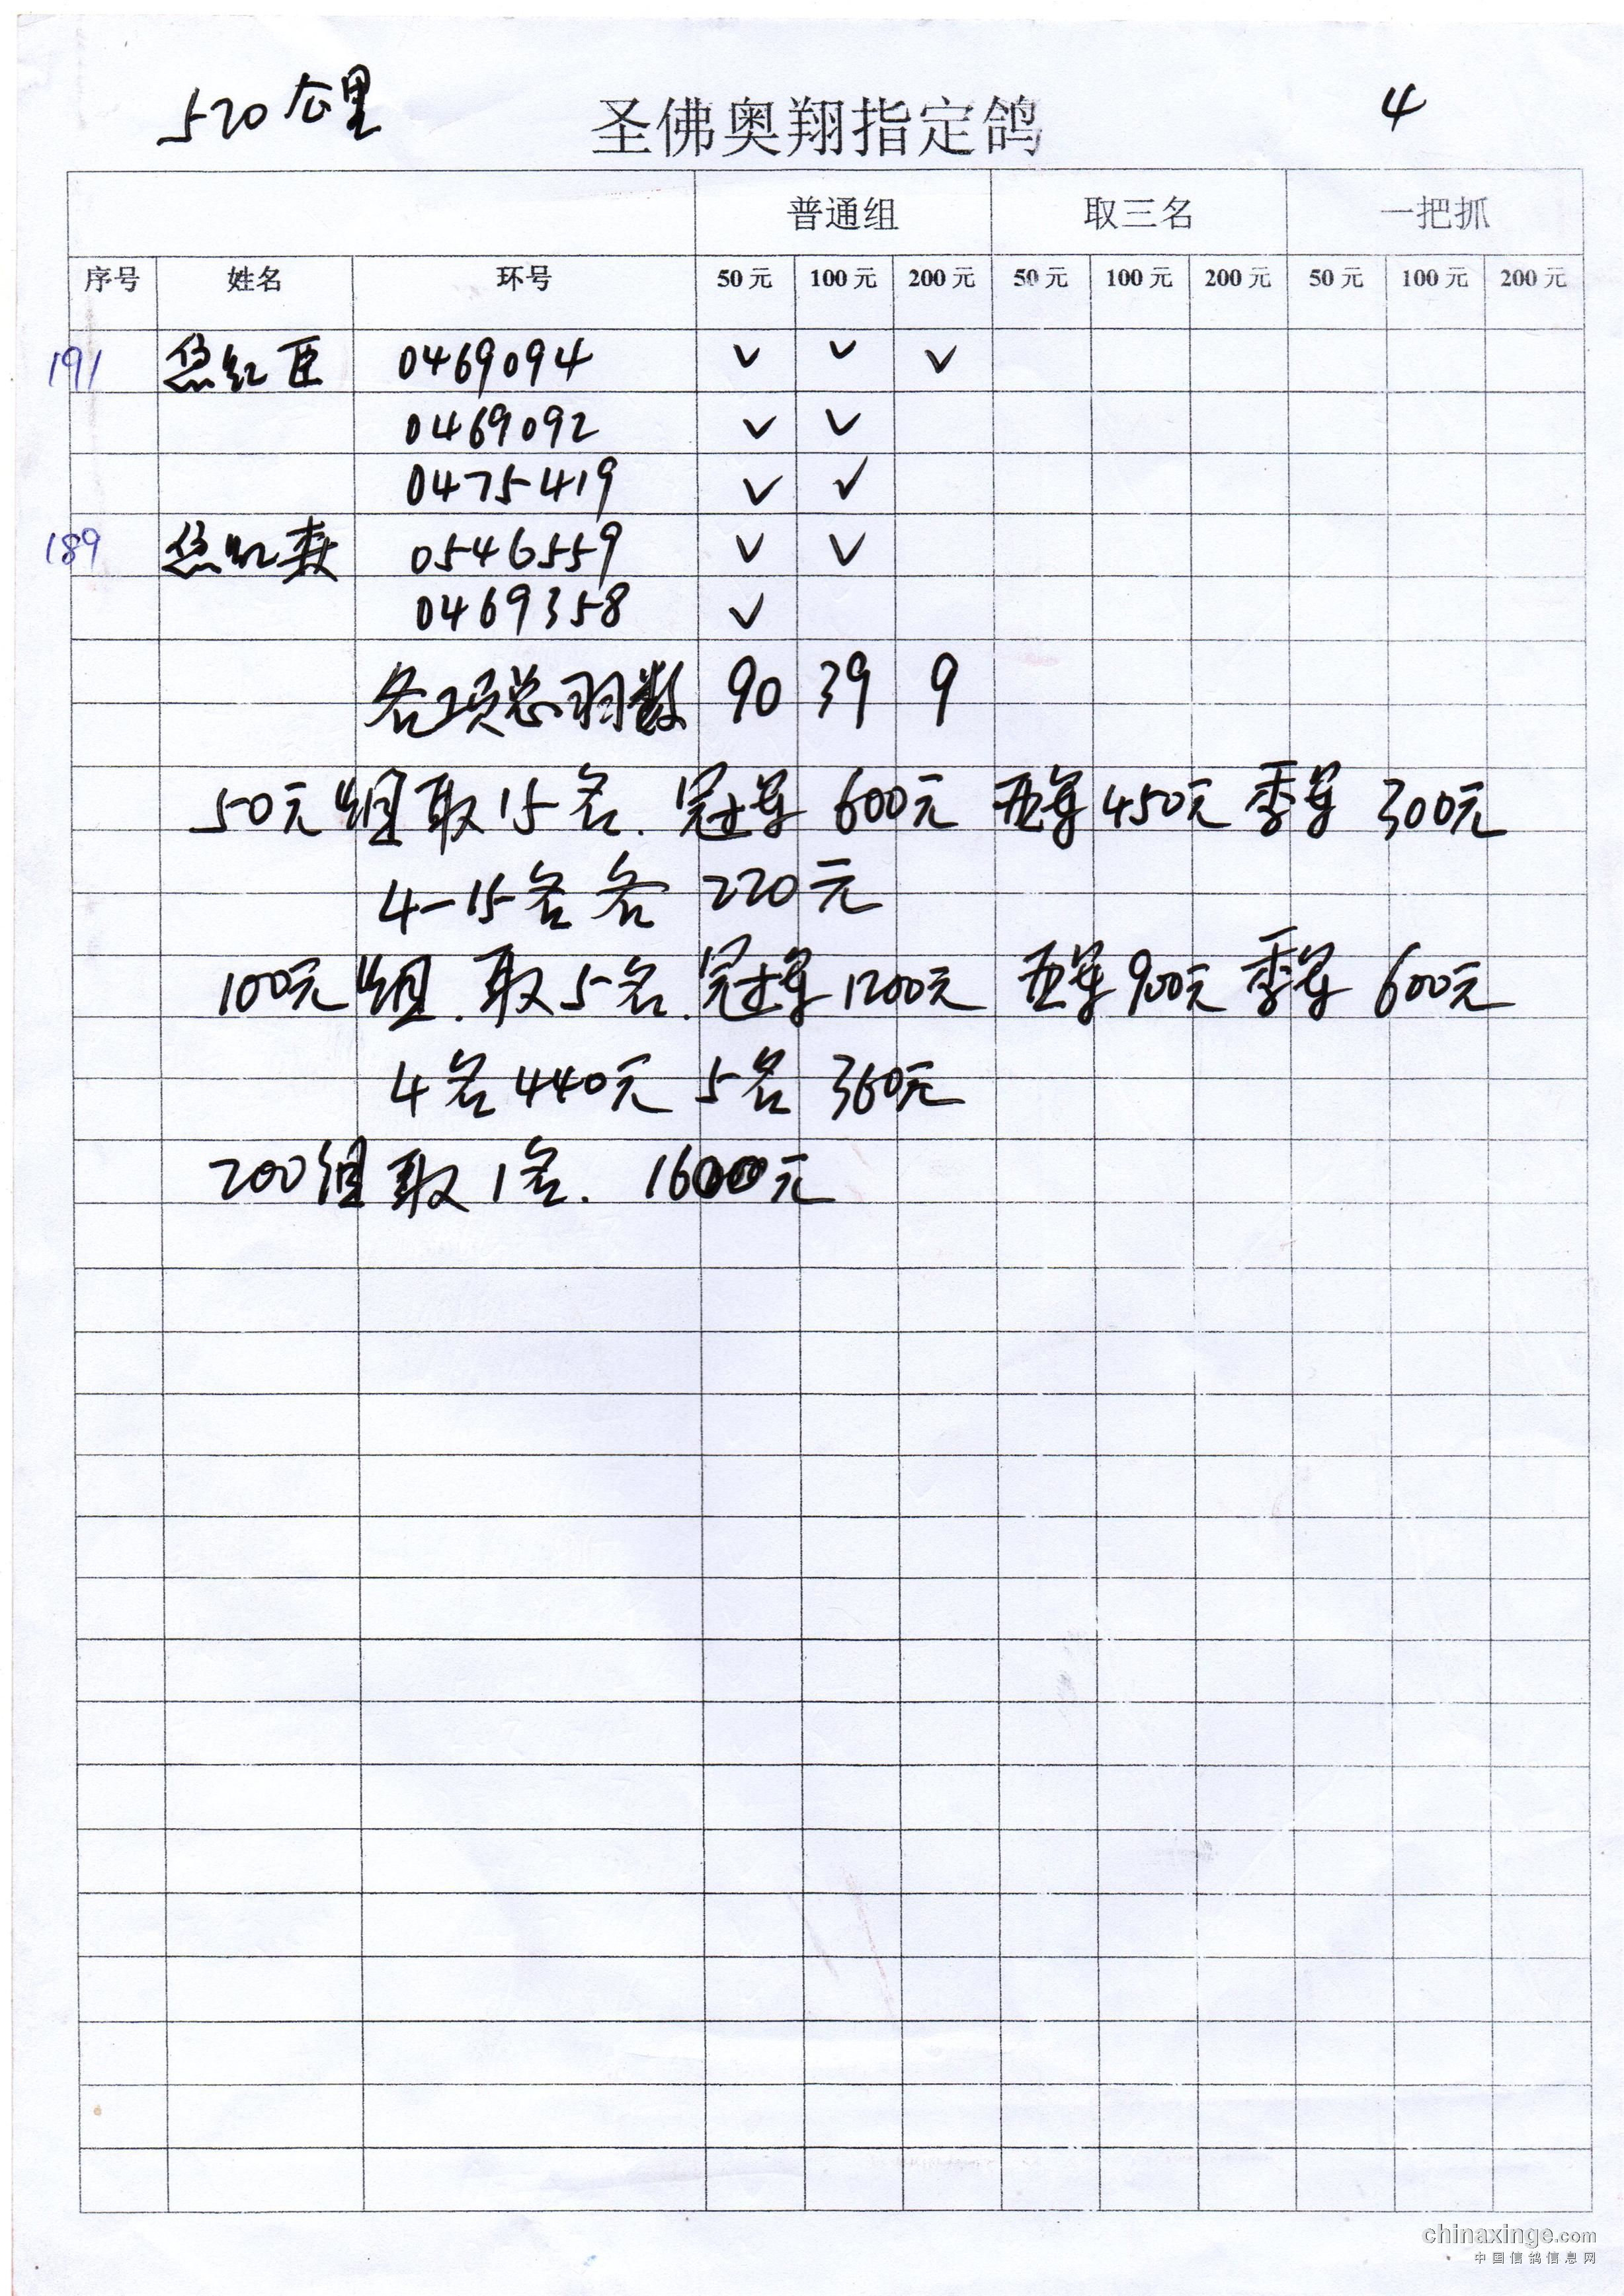 520公里 圣佛奥翔指定鸽 4
普通组 取三名 一把抓
序号 姓名 环号 50元 100元 200元 50元 100元 200元 50元 100元 200元
191 红臣 0469094 ✓ ✓ ✓
0469092 ✓ ✓
0475419 ✓ ✓
189 红 0546559 ✓ ✓
0469358 ✓
各项总羽数 90 39 9
50元组取15名. 冠军 600元 亚军450元 季军 300元
4-15名各 220元
100元组.取5名.冠军1200元 亚军900元 季军 600元
4名440元 5名 360元
200组取1名. 1600元
chinaxinge.com
中国信鸽信息网